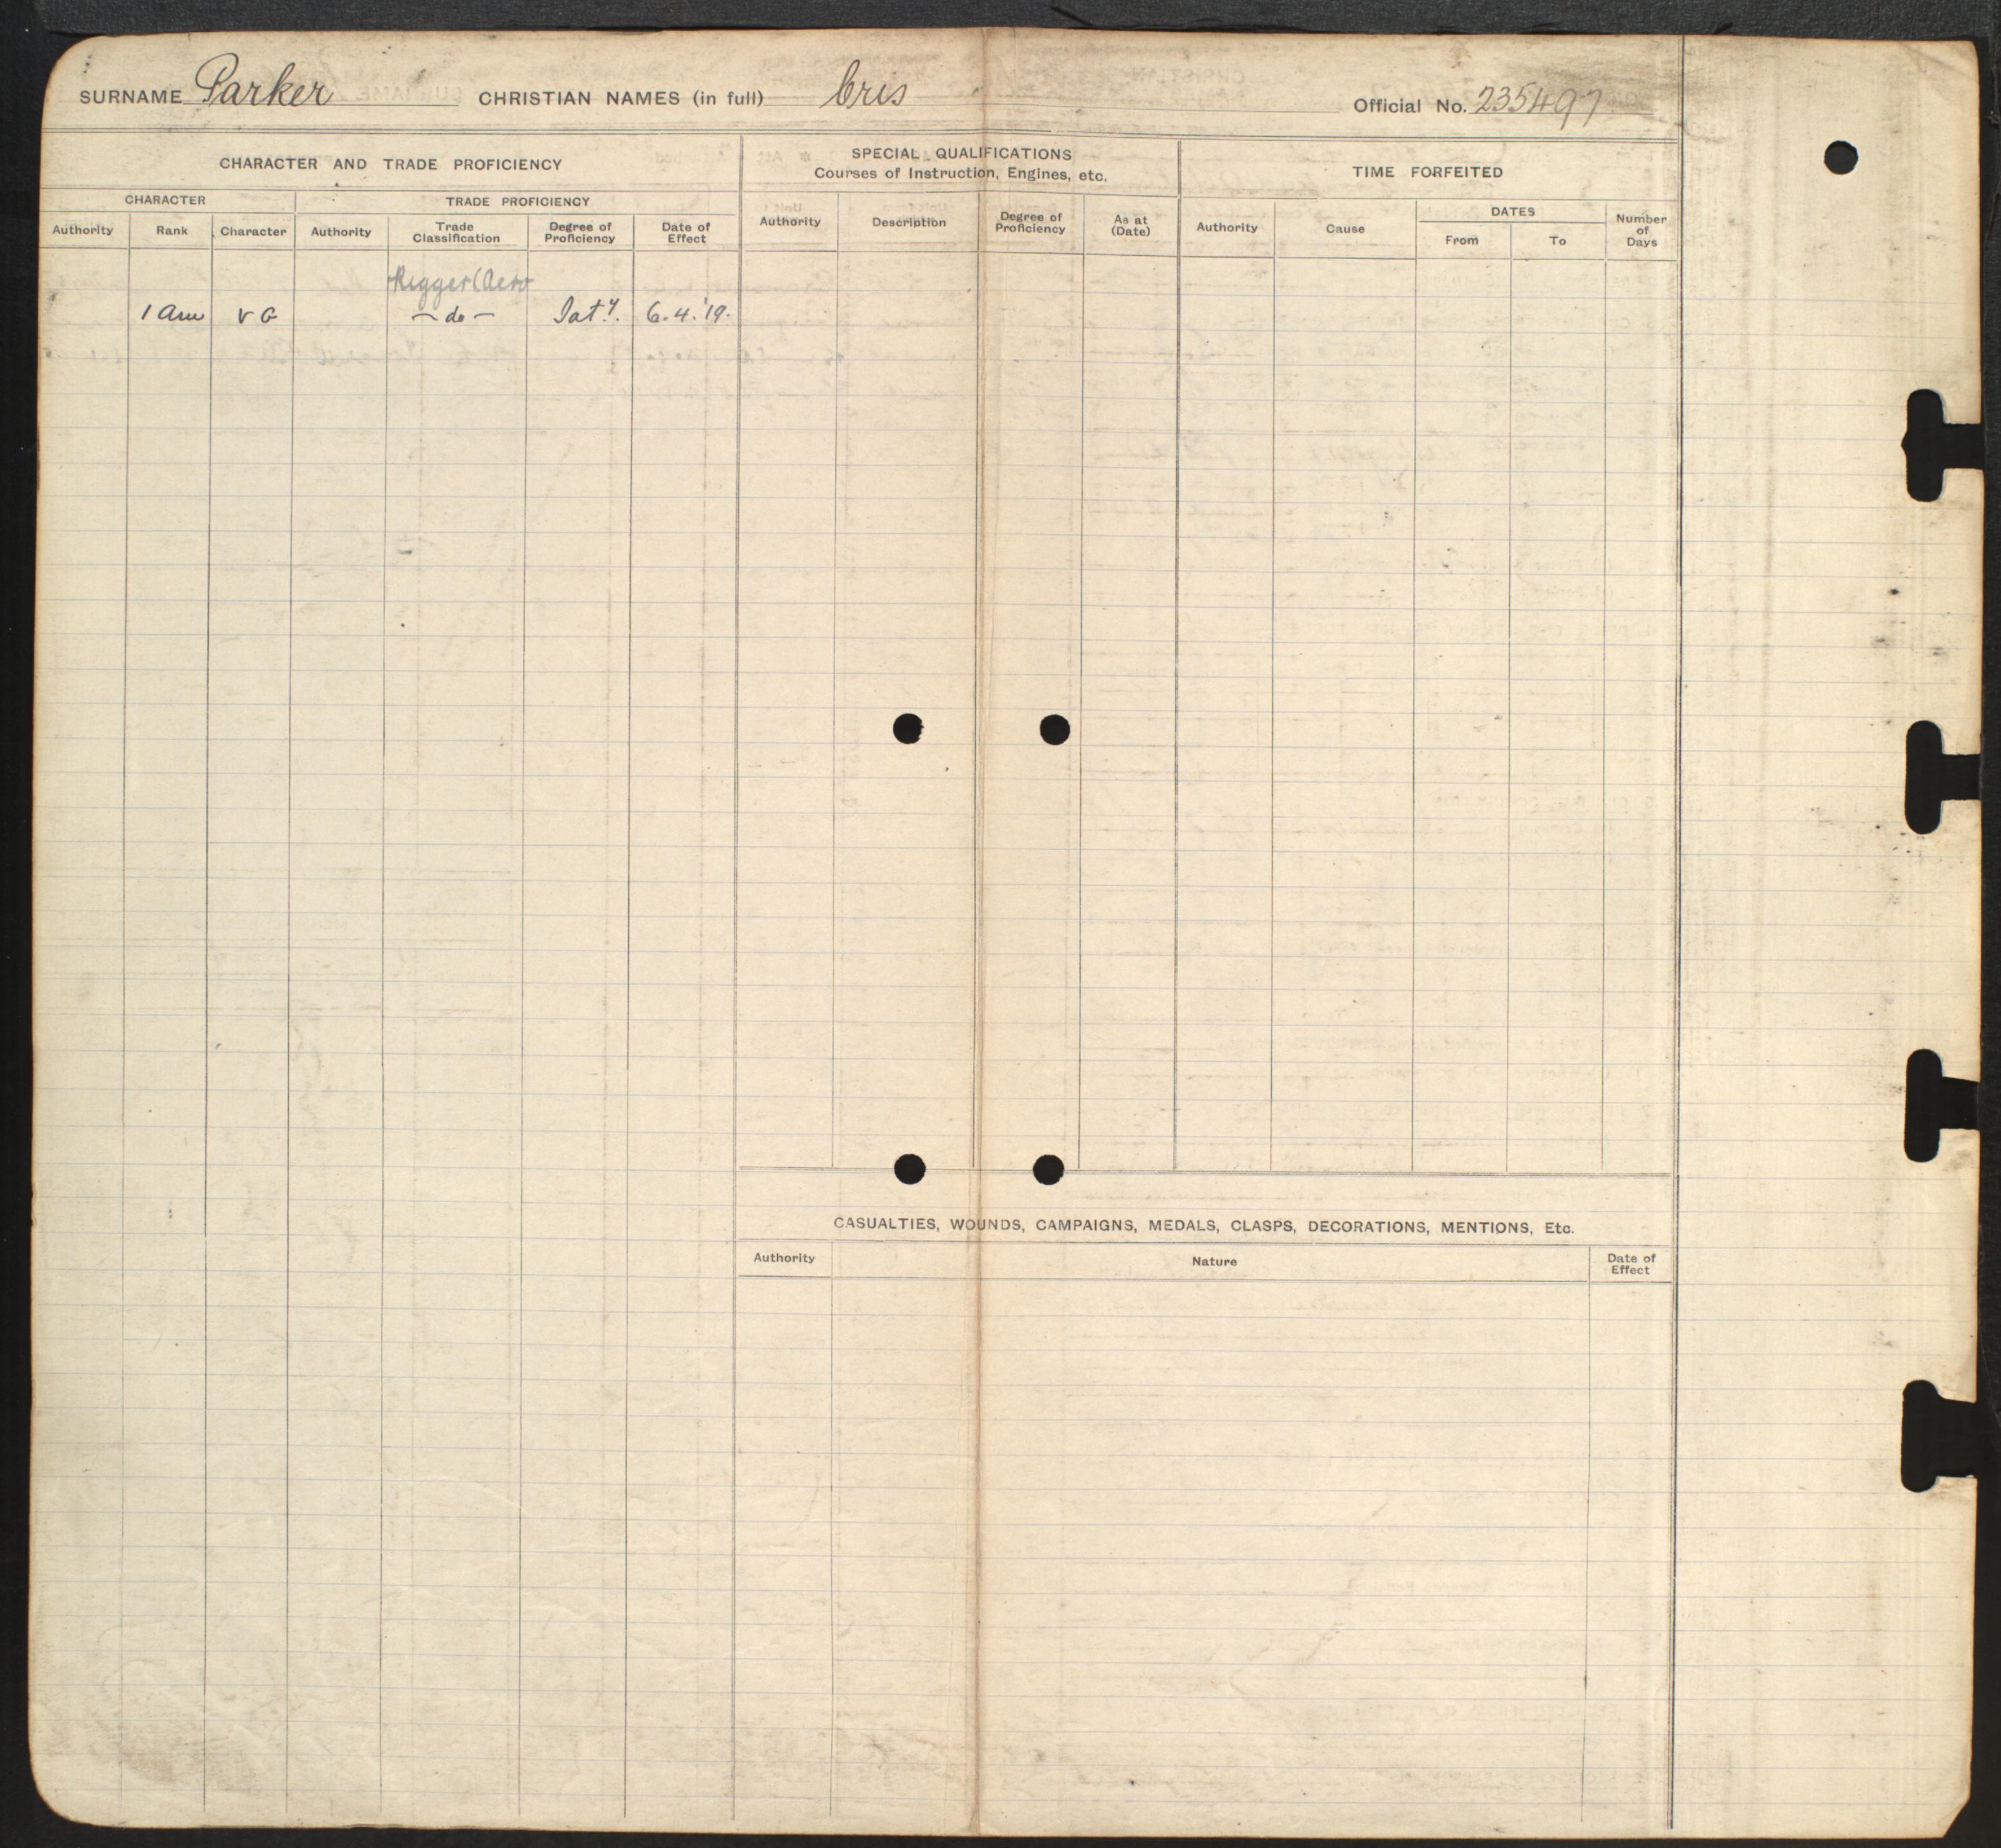 SURNAME Parker CHRISTIAN NAMES (in full) Cris Official No. 235497
CHARACTER AND TRADE PROFICIENCY
CHARACTER
TRADE PROFICIENCY
Authority Rank Character Authority Trade Classification Degree of Proficiency Date of Effect
Rigger (Aero
1 Am V G — do — Saty. 6.4.'19.
SPECIAL QUALIFICATIONS
Courses of Instruction, Engines, etc.
Authority Description Degree of Proficiency As at (Date)
TIME FORFEITED
Authority Cause DATES From To Number of Days
CASUALTIES, WOUNDS, CAMPAIGNS, MEDALS, CLASPS, DECORATIONS, MENTIONS, Etc.
Authority Nature Date of Effect